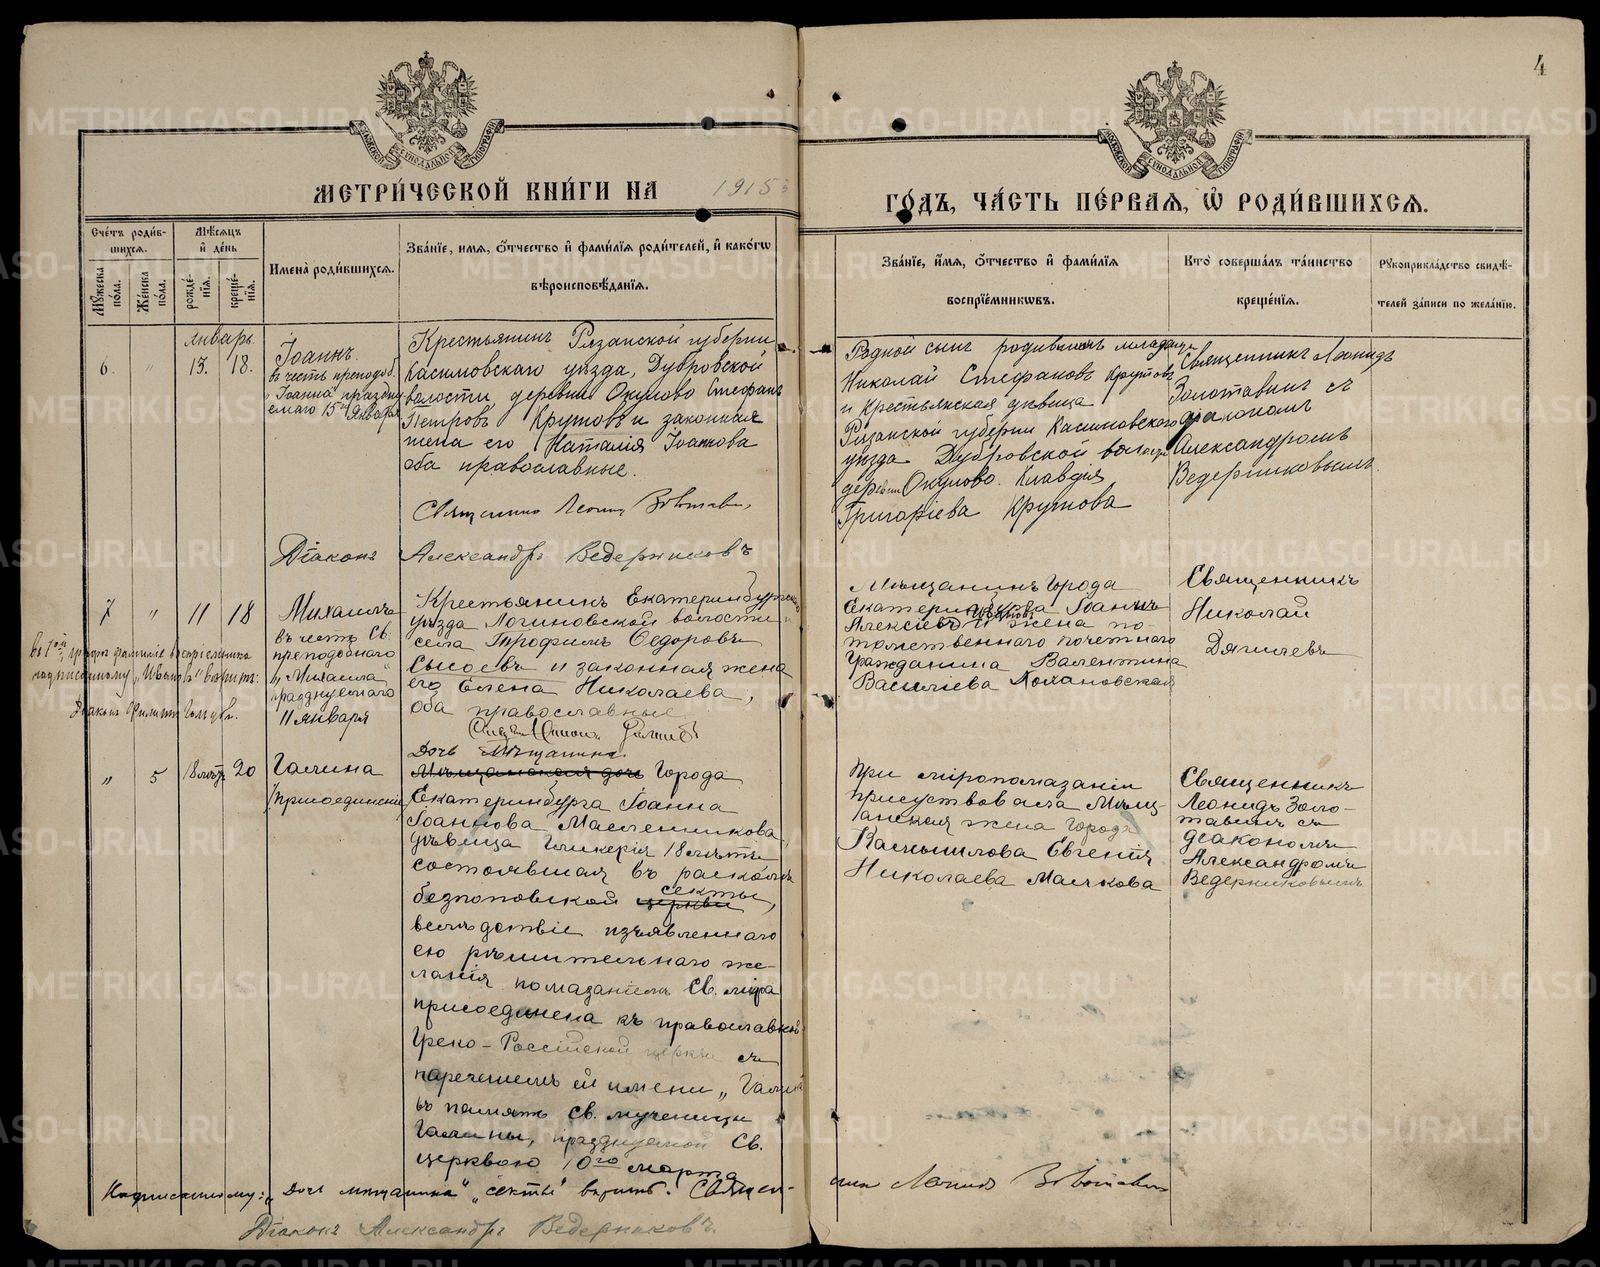 4
МЕТРИ́ЧЕСКОЙ КНИ́ГИ НА 1915
ГО́ДЪ, ЧА́СТЬ ПЕ́РВАЯ, Ѡ РОДИ́ВШИХСЯ.
Сче́тъ роди́в-
шихся.
Му́жеска по́ла.
Же́нска по́ла.
Мѣ́сяцъ
и де́нь
рожде́-
нія.
креще́-
нія.
Имена̀ роди́вшихся.
Зва́нїе, имя, ѻ҆́тчество и фами́лїя роди́телей, и како́гѡ
вѣроисповѣ́данїя.
Зва́нїе, и́мя, ѻ҆́тчество и фами́лїя
воспрїе́мникѡвъ.
Кто̀ соверша́лъ та́инство
креще́нїя.
Рукоприкла́дство свидѣ́-
телей за́писи по жела́нію.
Январь.
6.
"
13.
18.
Іоаннъ.
въ честь преподоб.
"Іоанна" праздну
емаго 15го Января
Крестьянинъ Рязанской губерніи
Касимовскаго уѣзда, Дубровской
волости, деревни Окулово Стефанъ
Петровъ Крутовъ и законная
жена его Наталія Іоаннова
оба православные.
Родной сынъ родившихъ младенца
Николай Стефановъ Крутовъ
и крестьянская дѣвица
Рязанской губерніи Касимовскаго
уѣзда Дубровской волости
деревни Окулово. Клавдія
Григоріева Крутова
Священникъ Леонидъ
Золотавинъ съ
діакономъ
Александромъ
Ведерниковымъ.
Священникъ Леонидъ Золотавинъ
Діаконъ Александръ Ведерниковъ
7
"
11
18
Михаилъ
въ честь Св.
преподобнаго
"Михаила"
празднуемаго
11 января
Крестьянинъ Екатеринбургскаго
уѣзда Логиновской волости
села Трофимъ Ѳедоровъ
Сысоевъ и законная жена
его Елена Николаева,
оба православные
Мѣщанинъ Города
Екатеринбурга Іоаннъ
Алексѣевъ Ивановъ и жена по-
томственнаго почетнаго
гражданина Валентина
Василіева Похановская
Священникъ
Николай
Дягилевъ
въ 7ой графѣ фамиліе воспріемника
надписанному "Ивановъ" вѣрить:
Діаконъ Филиппъ
"
5
18 лѣтъ
20
Галина
/Присоединеніе/
Дочь Мѣщанина
Мѣщанская дочь Города
Екатеринбурга Іоанна
Іоаннова Масленникова,
дѣвица Гликерія 18 лѣтъ
состоявшая въ расколѣ
безпоповской церкви секты,
вслѣдствіе изъявленнаго
ею рѣшительнаго же-
ланія помазаніемъ Св. мѵра
присоединена къ православной
Греко-Россійской церкви съ
нареченіемъ ей имени "Галина"
въ память св. мученицы
Галины, празднуемой Св.
церквою 10го марта
При мѵропомазаніи
присутствовала Мѣщ-
анская жена Города
Камышлова Евгенія
Николаева Малкова
Священникъ
Леонидъ Золо-
тавинъ съ
діакономъ
Александромъ
Ведерниковымъ
Надписанному: "Дочь мѣщанина" "секты" вѣрить. Священ-
никъ Леонидъ Золотавинъ
Діаконъ Александръ Ведерниковъ.
METRIKI.GASO-URAL.RU